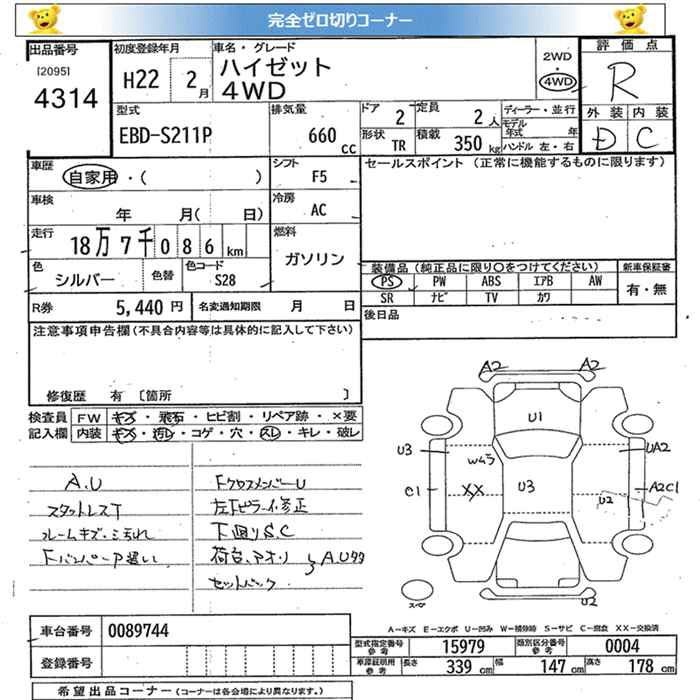 完全ゼロ切りコーナー
出品番号 初度登録年月 車名・グレード 評価点
[2095] 4314 H22 2月 ハイゼット 4WD 2WD 4WD R
型式 排気量 ドア 2 定員 2人 ディーラー・並行 外装 内装
EBD-S211P 660 cc 形状 TR 積載 350 kg モデル年式 年 ハンドル 左・右 D C
車歴 自家用・( ) シフト F5 セールスポイント (正常に機能するものに限ります)
車検 年 月( 日) 冷房 AC
走行 18万7千086km 燃料 ガソリン
色 シルバー 色替 色コード S28
装備品(純正品に限り〇をつけてください) 新車保証書
PS PW ABS エアB AW 有・無
SR ナビ TV カワ
R券 5,440円 名変通知期限 月 日 後日品
注意事項申告欄(不具合内容等は具体的に記入して下さい)
修復歴 有 [箇所 ]
検査員 FW キズ・飛石・ヒビ割・リペア跡・×要
記入欄 内装 キズ・汚レ・コゲ・穴・スレ・キレ・破レ
A.U
スタットレスT
フレームキズ・ミだれ
FクロスメンバーU
左Fピラーイ修正
下廻りS.C
荷台、アオリ
セットバック
A2 A2
U1
U3 W45 UA2
C1 XX U3 U2 A2C1
スペア U2
A-キズ E-エクボ U-凹み W-補修時 S-サビ C-腐食 XX-交換済
車台番号 0089744
登録番号
型式指定番号 参考 15979 類別区分番号 参考 0004
車庫証明用 参考 長さ 339 cm 幅 147 cm 高さ 178 cm
希望出品コーナー (コーナーは各会場により異なります。)